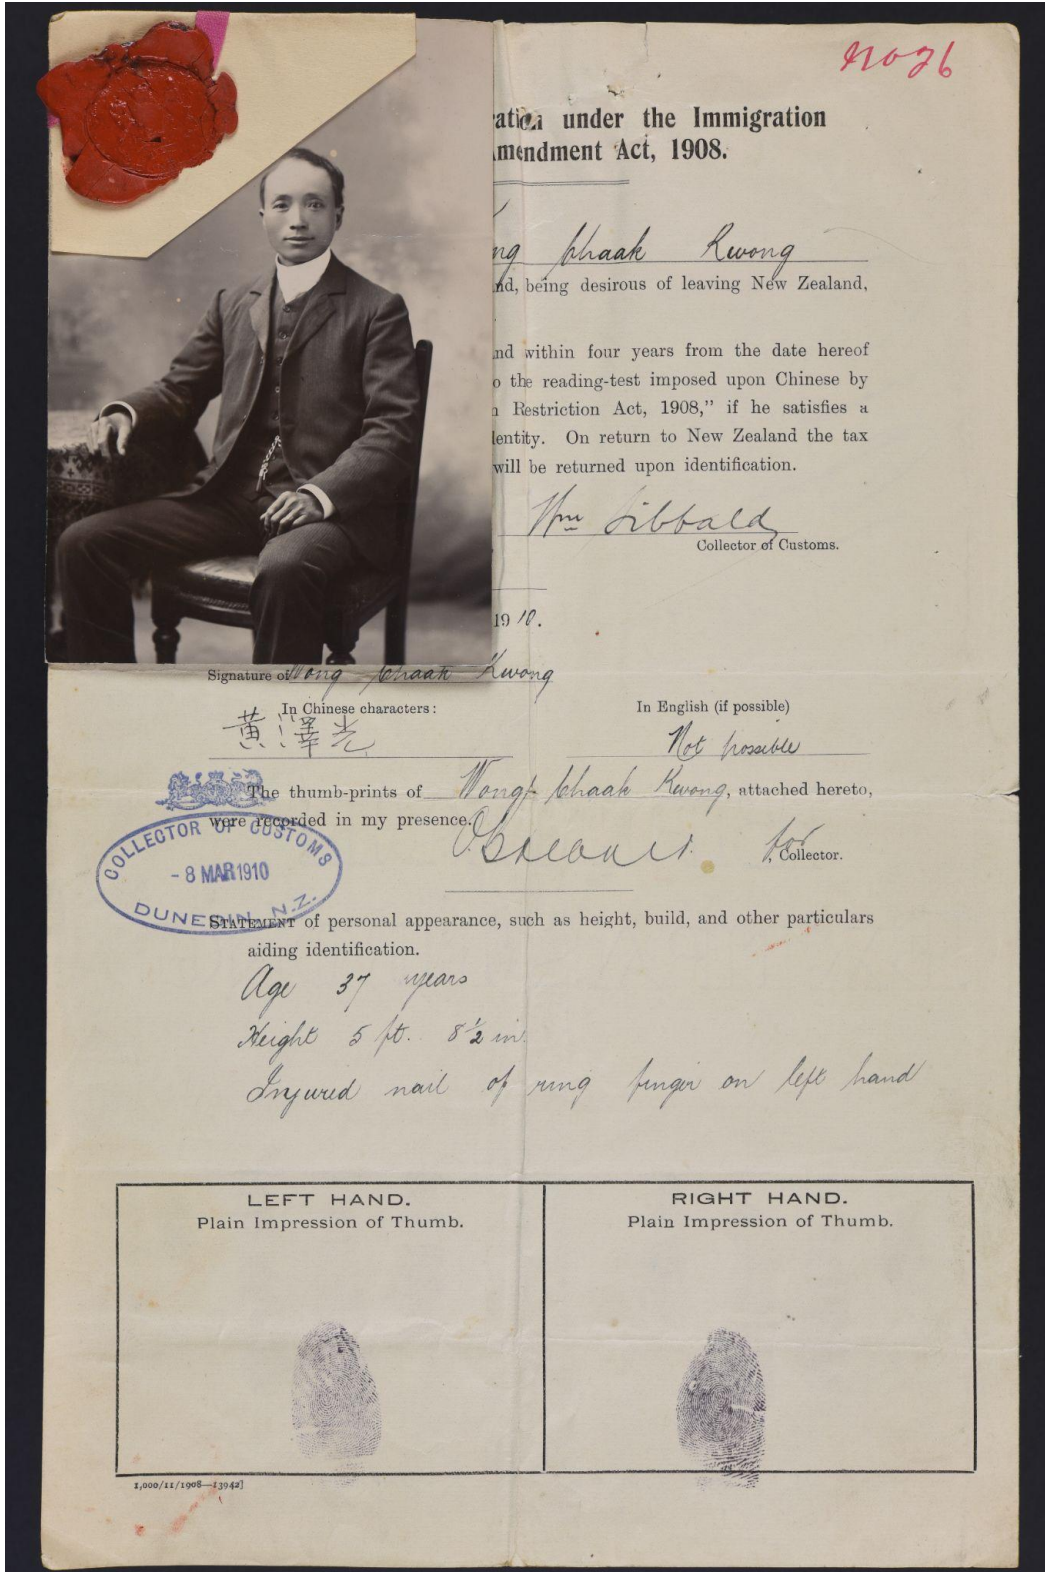 No 26
ration under the Immigration
Amendment Act, 1908.
ng Chaak Kwong
nd, being desirous of leaving New Zealand,
nd within four years from the date hereof
o the reading-test imposed upon Chinese by
n Restriction Act, 1908," if he satisfies a
dentity. On return to New Zealand the tax
will be returned upon identification.
Wm Sibbald
Collector of Customs.
1910.
Signature of Wong Chaak Kwong
In Chinese characters:
In English (if possible)
黄澤光
Not possible
The thumb-prints of Wong Chaak Kwong, attached hereto,
were recorded in my presence.
for Collector.
COLLECTOR OF CUSTOMS
- 8 MAR 1910
DUNEDIN, N.Z.
STATEMENT of personal appearance, such as height, build, and other particulars
aiding identification.
Age 37 years
Height 5 ft. 8½ in.
Injured nail of ring finger on left hand
LEFT HAND.
Plain Impression of Thumb.
RIGHT HAND.
Plain Impression of Thumb.
1,000/11/1908—13942]